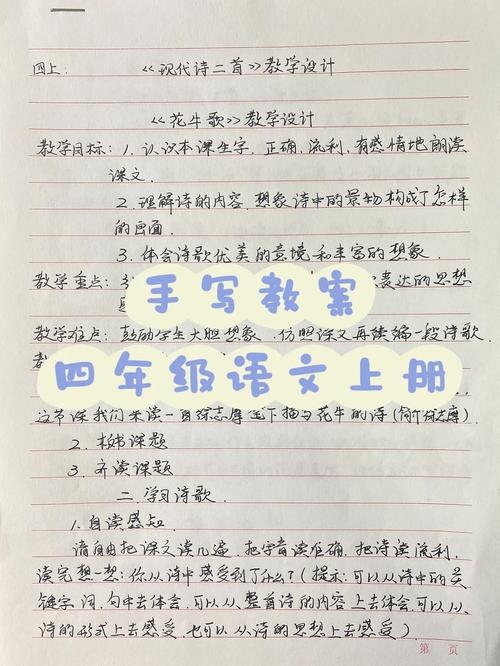 四上: 《现代诗二首》教学设计
《花牛歌》教学设计
教学目标: 1. 认识本课生字, 正确, 流利, 有感情地朗读
课文.
2. 理解诗的内容, 想象诗中的景物构成了怎样
的画面.
3. 体会诗歌优美的意境和丰富的想象.
教学重点: 表达的思想
手写教案
教学难点: 鼓励学生大胆想象, 仿照课文再续编一段诗歌.
四年级语文上册
这节课我们来读一首徐志摩笔下描写花牛的诗(简介徐志摩).
2. 板书课题
3. 齐读课题
二. 学习诗歌.
1. 自读感知.
请自由把课文读几遍, 把字音读准确, 把诗读流利,
读完想一想: 你从诗中感受到了什么? (提示: 可以从诗中的关
键字, 词, 句中去体会, 可以从整首诗的内容上去体会, 可以从
诗的形式上去感受, 也可以从诗的思想上去感受).
第 页